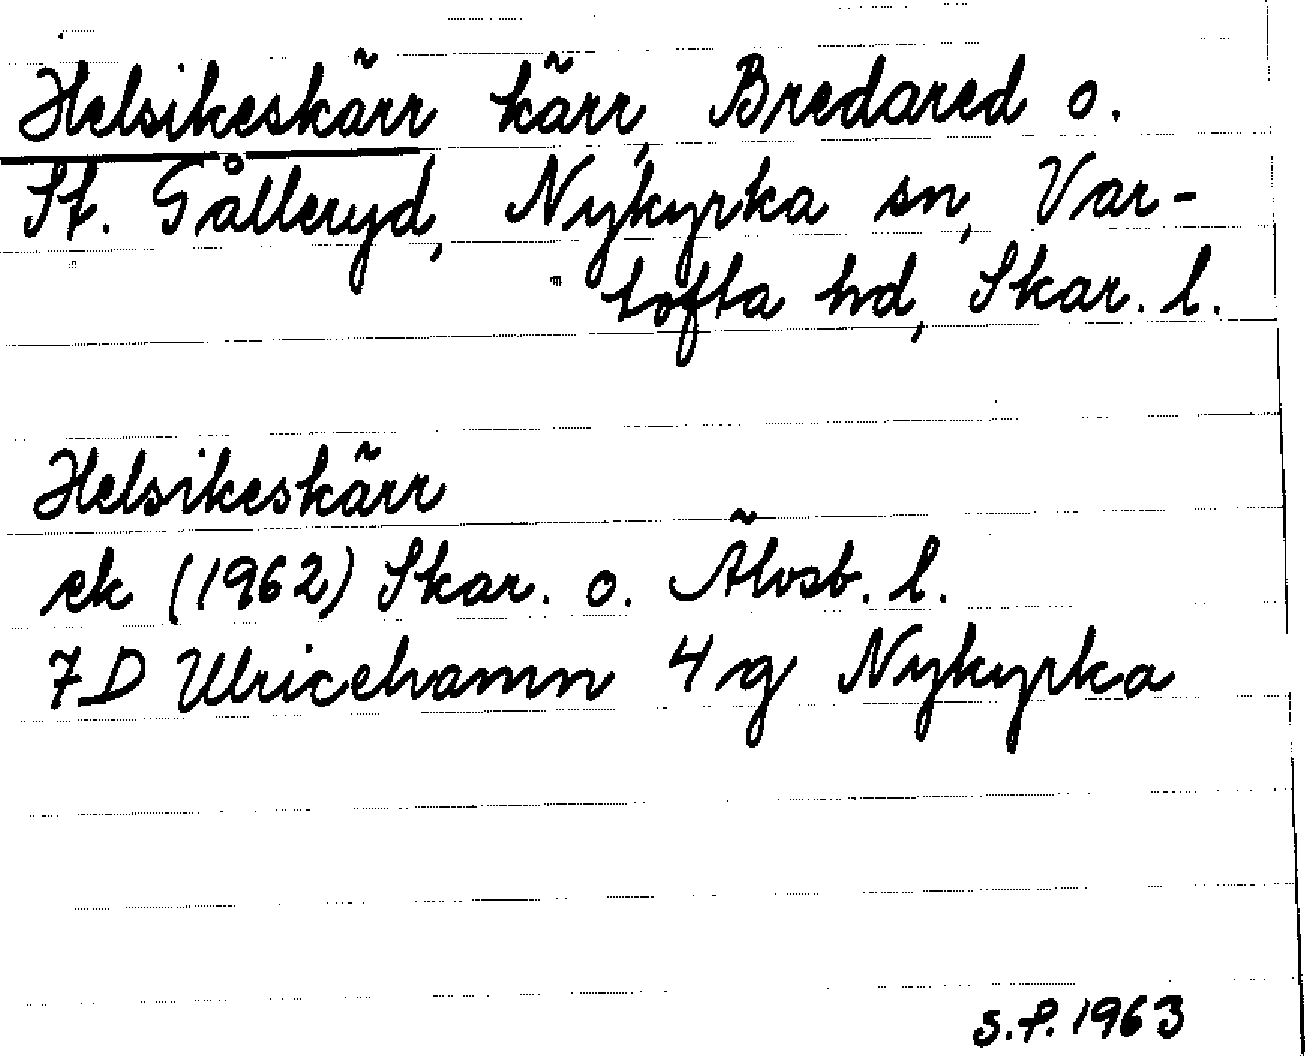 Helsikeskärr kärr, Bredared o.
St. Gålleryd, Nykyrka sn, Var-
tofta hd, Skar. l.
Helsikeskärr
ek (1962) Skar. o. Älvsb. l.
7D Ulricehamn 4g Nykyrka
S.P. 1963